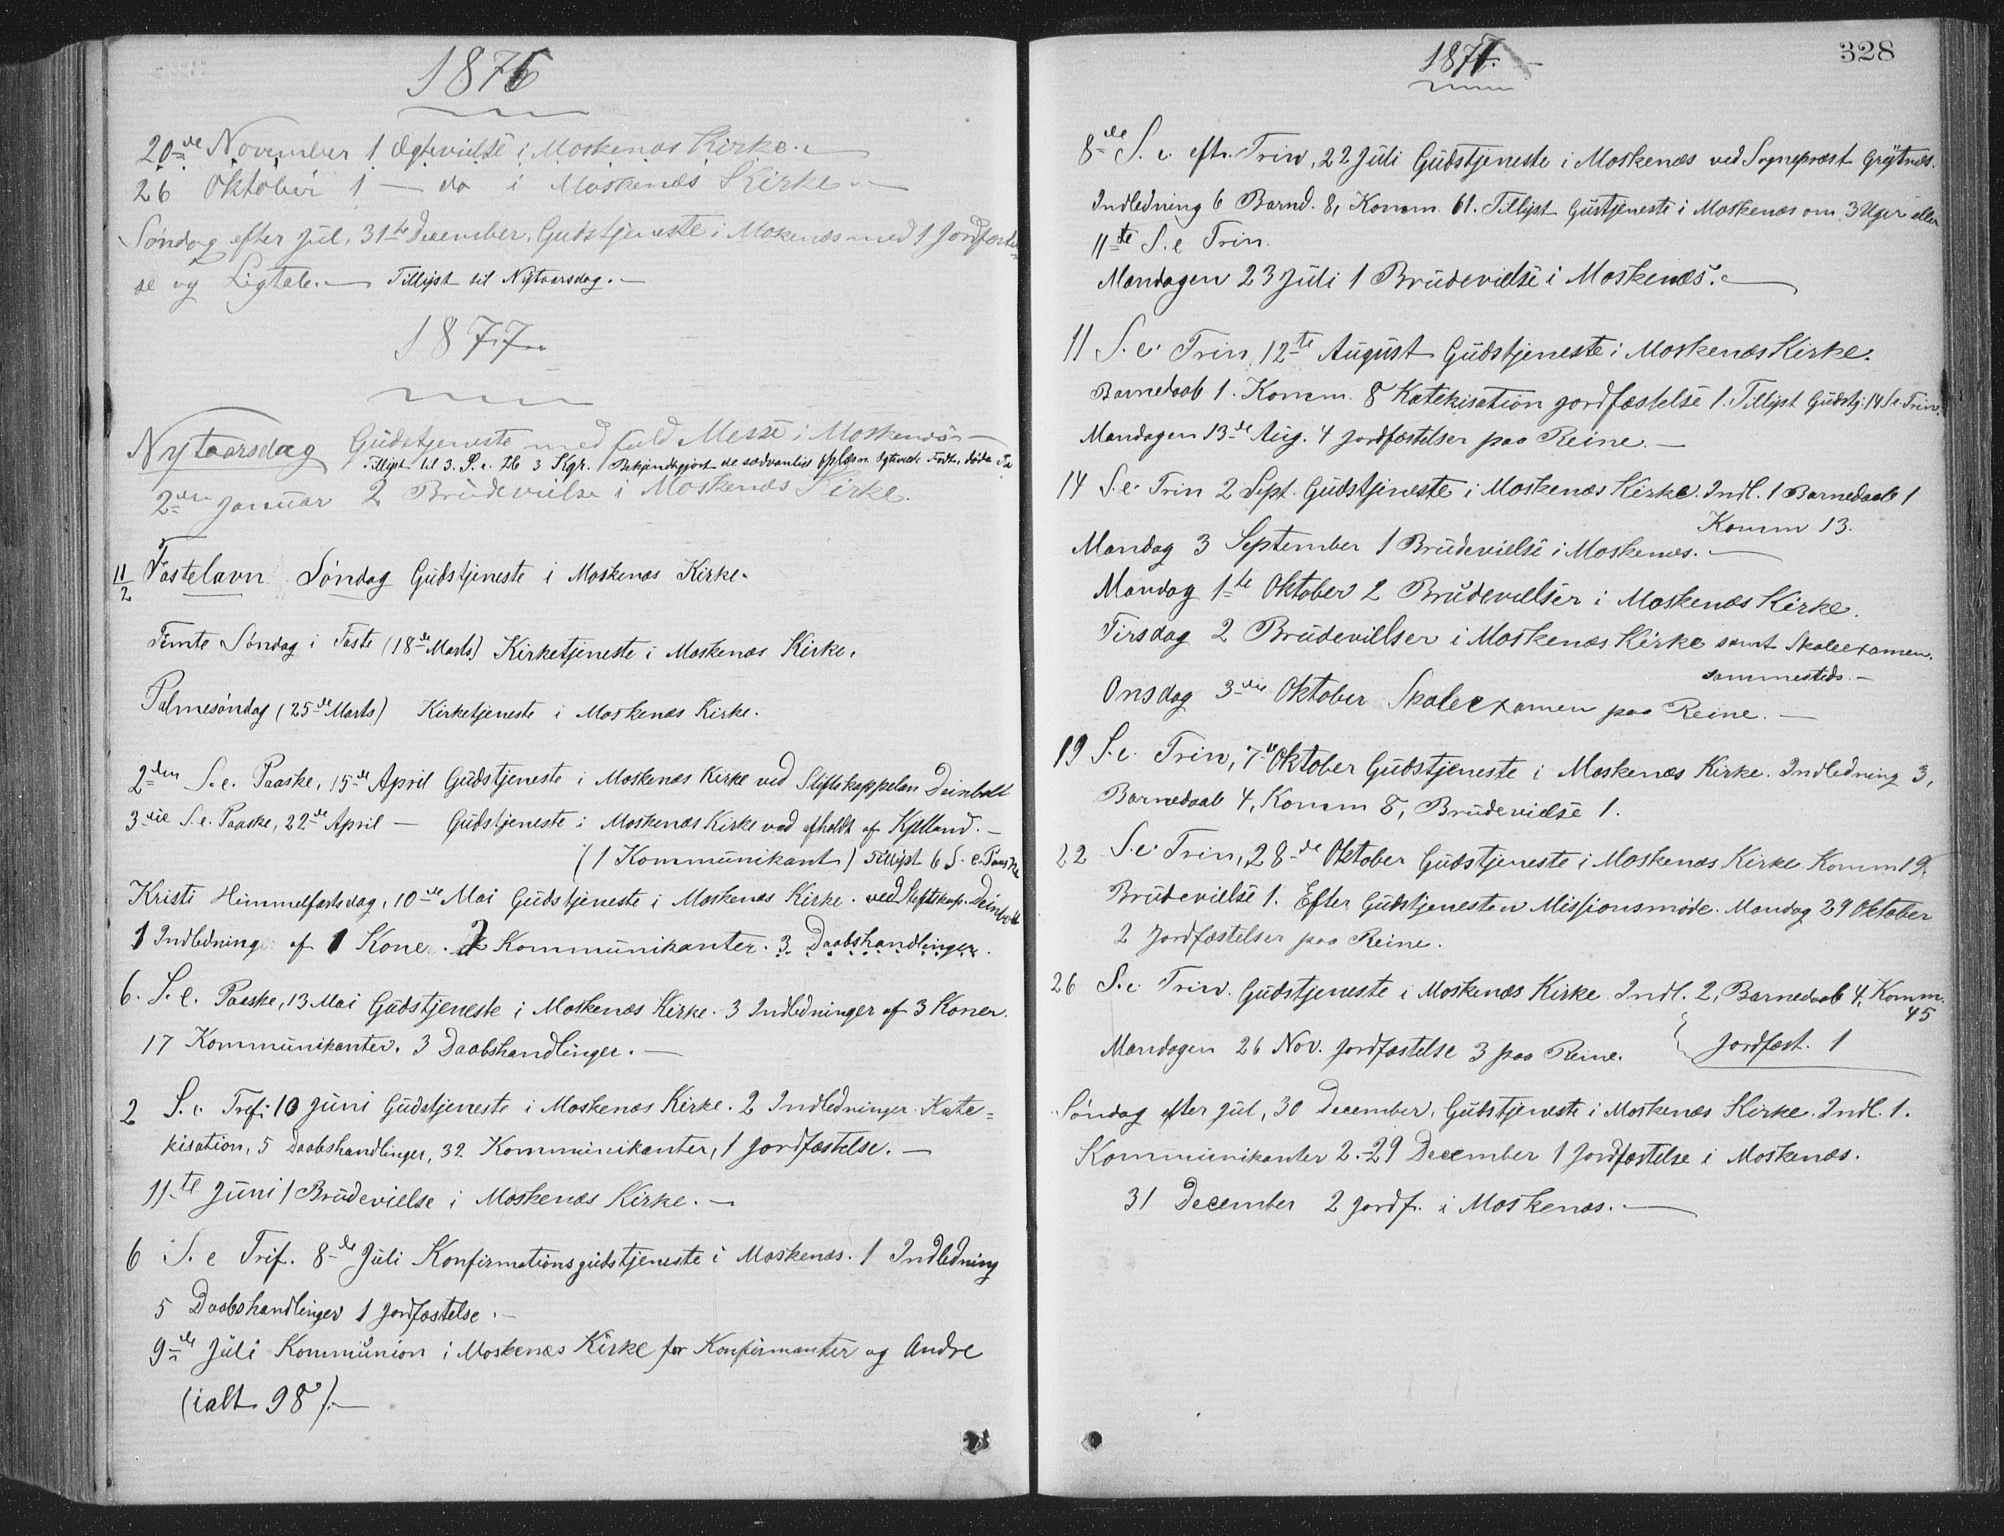 1876
20de November 1 Ægtevielse i Moskenæs Kirke. —
26 Oktober 1 — do i Moskenæs Kirke. —
Søndag efter Jul, 31te December, Gudstjeneste i Mokenæs med 1 Jordfæstel=
se og Ligtale. — Tillyst til Nytaarsdag. —
1877
Nytaarsdag Gudstjeneste med fuld Messe i Moskenæs. —
Tillyst til 3. S. e. H 3 Kgr. Bekjendtgjort de sædvanlige Oplæsn. Ægteviede Fødte, døde
2den Januar 2 Brudevielse i Moskenæs Kirke.
11/2 Fastelavn Søndag Gudstjeneste i Moskenæs Kirke.
Femte Søndag i Faste (18de Marts) Kirketjeneste i Moskenæs Kirke.
Palmesøndag (25de Marts) Kirketjeneste i Moskenæs Kirke.
2den S. e. Paaske, 15de April Gudstjeneste i Moskenæs Kirke ved Stiftskappelan Deinboll
3die S. e. Paaske, 22de April — Gudstjeneste i Moskenæs Kirke ved afholdt af Kjelland. —
(1 Kommunikant) Tillyst 6 S. e. Paaske
Kristi Himmelfartsdag, 10de Mai Gudstjeneste i Moskenæs Kirke. ved Stiftskap. Deinboll
1 Indledning af 1 Kone. 2 Kommunikanter. 3 Daabshandlinger.
6. S. e. Paaske, 13 Mai Gudstjeneste i Moskenæs Kirke. 3 Indledninger af 3 Koner.
17 Kommunikanter. 3 Daabshandlinger. —
2 S. e. Tref. 10 Juni Gudstjeneste i Moskenæs Kirke. 2 Indledninger. Kate=
kisation, 5 Daabshandlinger, 32 Kommunikanter, 1 Jordfæstelse. —
11te Juni 1 Brudevielse i Moskenæs Kirke. —
6 S. e Tref. 8de Juli Konfirmationsgudstjeneste i Moskenæs. 1 Indledning
5 Daabshandlinger 1 Jordfæstelse. —
9de Juli Kommunion i Moskenæs Kirke for Konfirmanter og Andre
(ialt 98). —
1877. —
328
8de S. e. eftr. Trin, 22 Juli Gudstjeneste i Moskenæs ved Sognepræst Grøtnæs.
Indledning 6 Barnd. 8, Komm. 61. Tillyst Gudstjeneste i Moskenæs om 3 Uger eller
11te S. e Trin.
Mandagen 23 Juli 1 Brudevielse i Moskenæs. —
11 S. e. Trin, 12te August Gudstjeneste i Moskenæs Kirke.
Barnedaab 1. Komm. 8 Katekisation Jordfæstelse 1. Tillyst Gudstj. 14 S. e. Trin.
Mandagen 13de Aug. 4 Jordfæstelser paa Reine. —
14 S. e. Trin 2 Sept. Gudstjeneste i Moskenæs Kirke. Indl. 1 Barnedaab 1
Komm 13.
Mandag 3 September 1 Brudevielse i Moskenæs. —
Mandag 1te Oktober 2 Brudevielser i Moskenæs Kirke.
Tirsdag 2 Brudevielser i Moskenæs Kirke samt Skoleexamen
sammesteds. —
Onsdag 3die Oktober Skoleexamen paa Reine. —
19 S. e. Trin, 7de Oktober Gudstjeneste i Moskenæs Kirke. Indledning 3,
Barnedaab 4, Komm 8, Brudevielse 1.
22 S. e. Trin, 28de Oktober Gudstjeneste i Moskenæs Kirke. Komm 19.
Brudevielse 1. Efter Gudstjenesten Missionsmøde. Mandag 29 Oktober
2 Jordfæstelser paa Reine.
26 S. e Trin. Gudstjeneste i Moskenæs Kirke Indl. 2, Barnedaab 4, Komm.
45
Mandagen 26 Nov. Jordfæstelse 3 paa Reine. Jordfæst. 1
Søndag efter Jul, 30 December, Gudstjeneste i Moskenæs Kirke. Indl. 1.
Kommunikanter 2. — 29 December 1 Jordfæstelse i Moskenæs.
31 December 2 Jordf. i Moskenæs. —